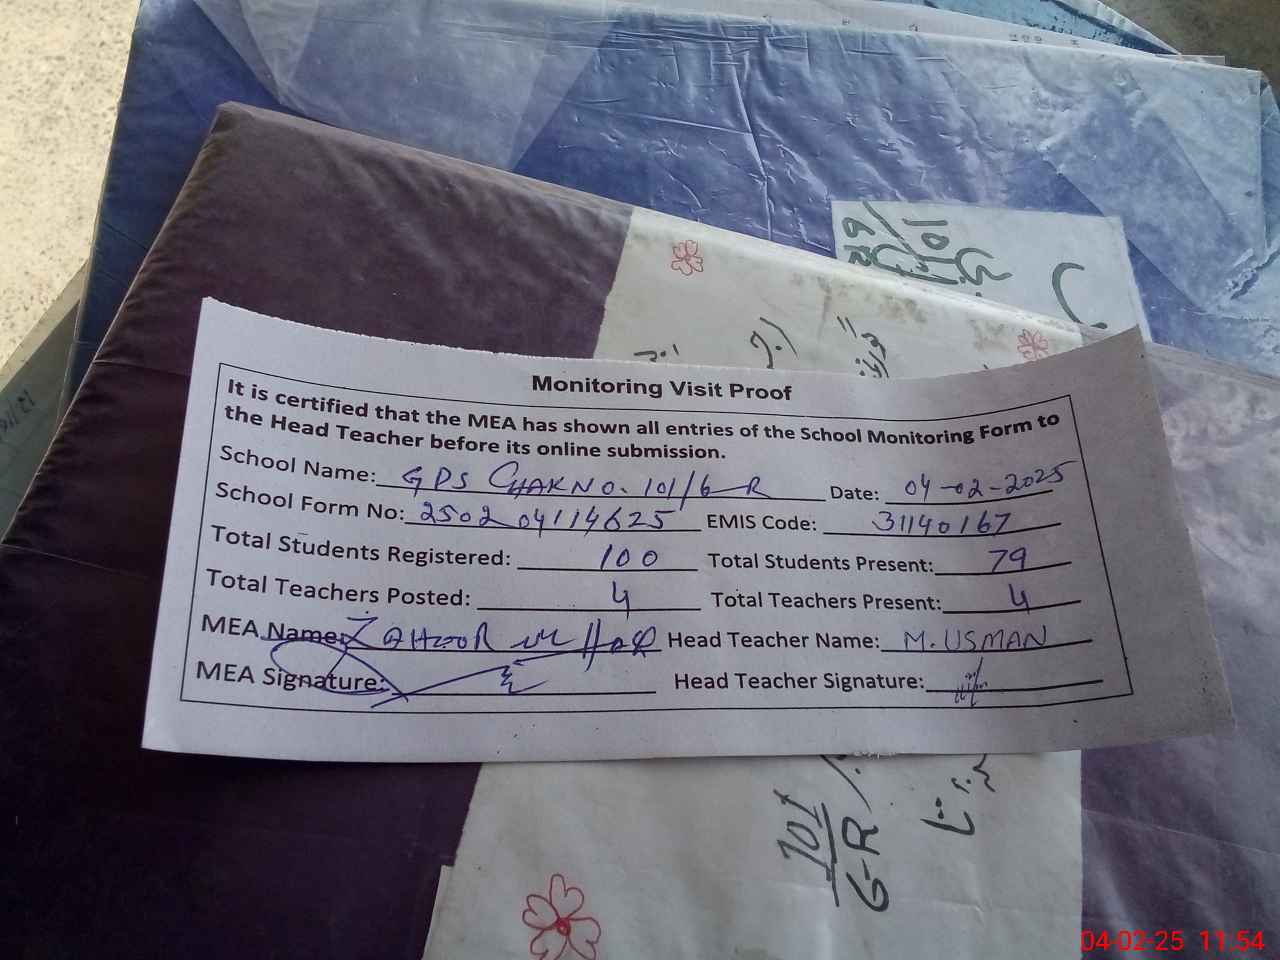 Monitoring Visit Proof
It is certified that the MEA has shown all entries of the School Monitoring Form to
the Head Teacher before its online submission.
School Name: GPS CHAK NO. 101/6-R Date: 04-02-2025
School Form No: 250204114625 EMIS Code: 31140167
Total Students Registered: 100 Total Students Present: 79
Total Teachers Posted: 4 Total Teachers Present: 4
MEA Name: ZAHOOR Head Teacher Name: M. USMAN
MEA Signature: Head Teacher Signature:
101
6-R
04-02-25 11:54